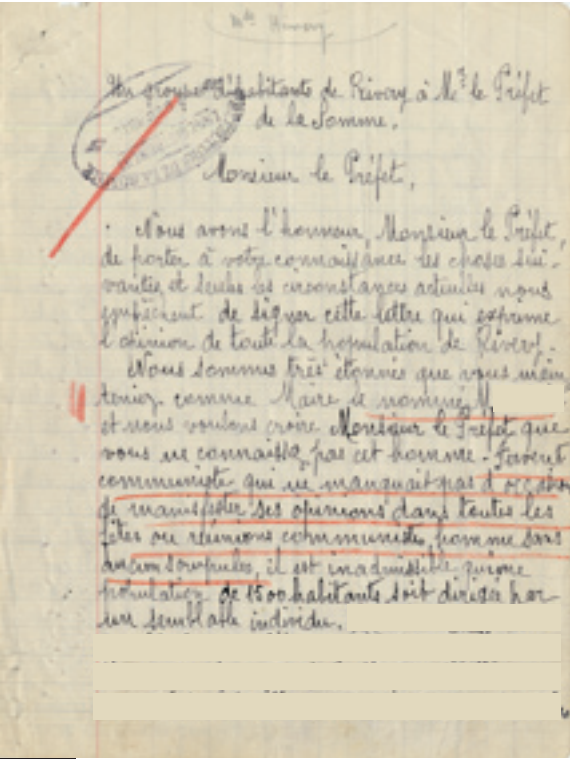 Un groupe d'habitants de Rivery à Mr le Préfet
de la Somme.
Monsieur le Préfet,
Nous avons l'honneur, Monsieur le Préfet,
de porter à votre connaissance les choses sui-
vantes et seules les circonstances actuelles nous
empêchent de signer cette lettre qui exprime
l'opinion de toute la population de Rivery.
Nous sommes très étonnés que vous main
teniez comme Maire le nommé M
et nous voulons croire Monsieur le Préfet que
vous ne connaissez pas cet homme. Fervent
communiste qui ne manquait pas d'occasion
de manifester ses opinions dans toutes les
fêtes ou réunions communistes, homme sans
aucun scrupules, il est inadmissible qu'une
population de 1500 habitants soit dirigée par
un semblable individu.